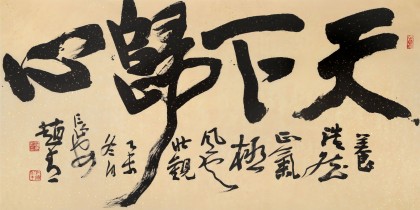 天下歸心
養
浩然
正氣
極
風雲
壯觀
乙未
冬月
長安
趙